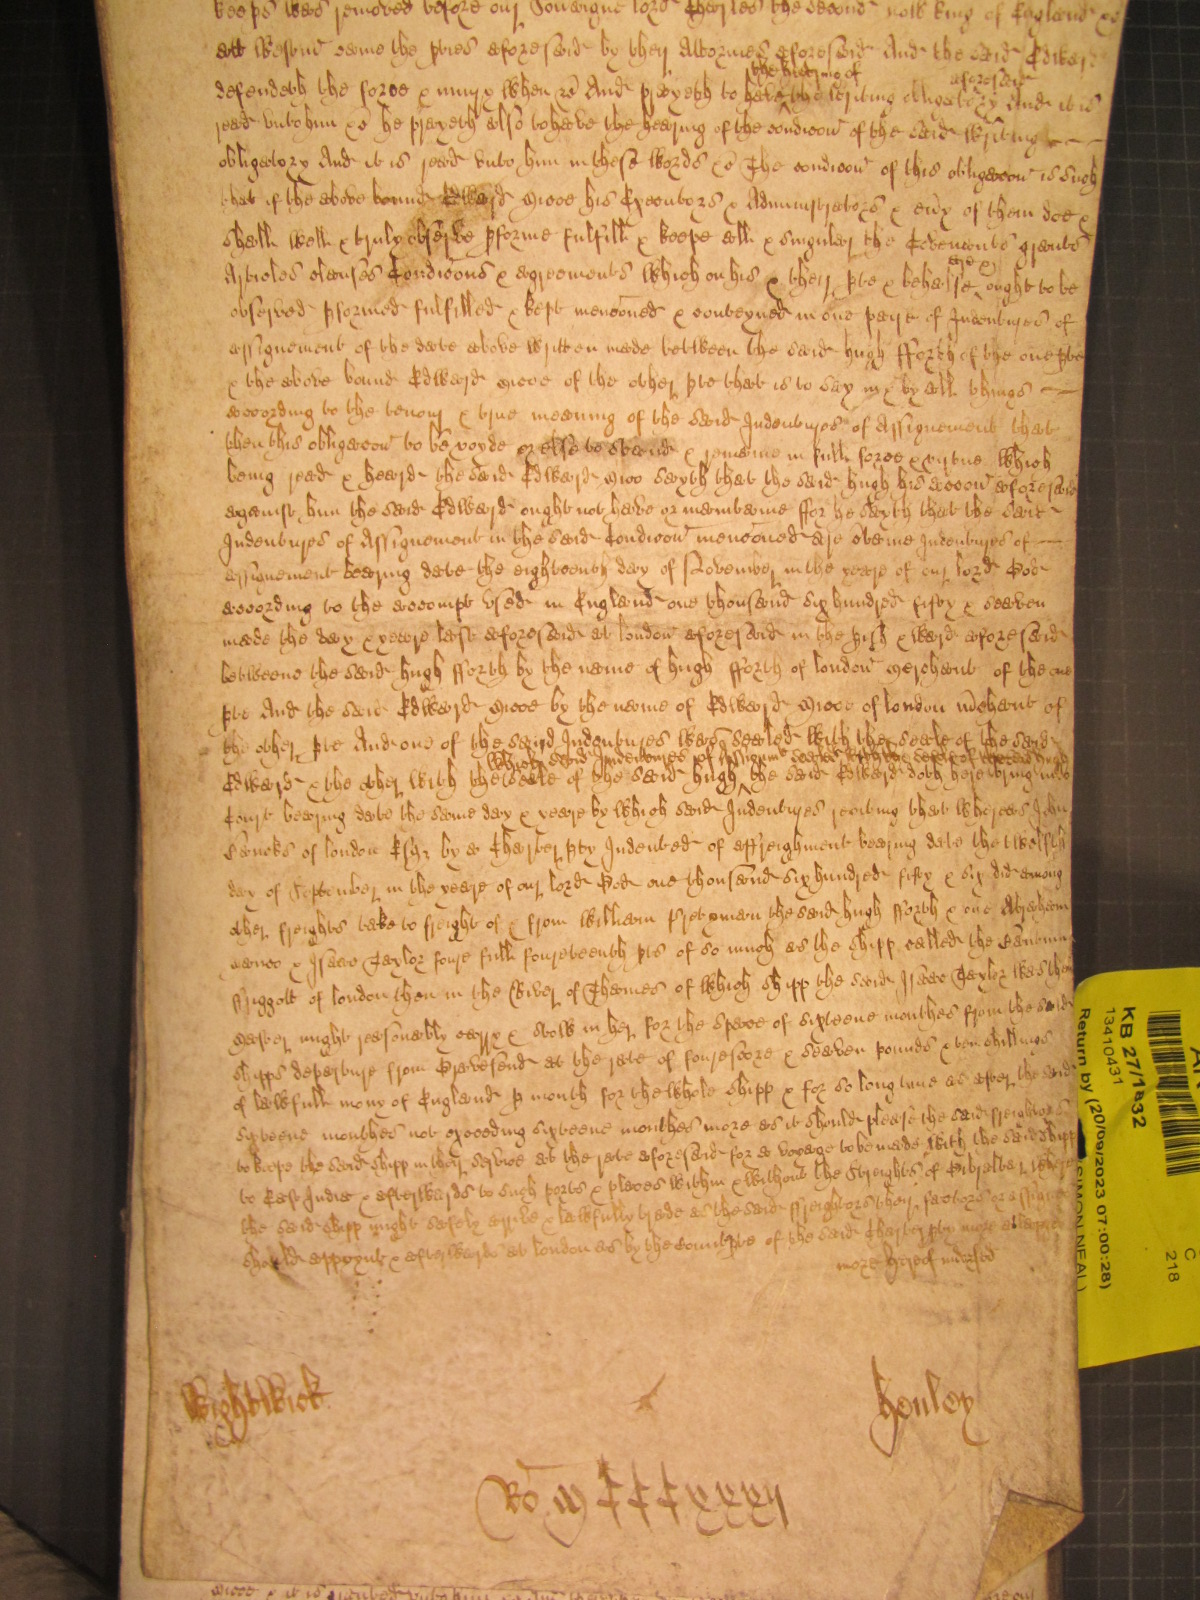 keeps was removed before our Sovaigne lord Charles the second now king of England &c
att Westm̃ came the pties aforesaid by their Attornies aforesaid And the said Edward
defendeth the force & iniury when &c And prayeth to have the hearing of the writing obligatory aforesaid And it is
read unto him &c he prayeth also to have the hearing of the condicon of the said writing
obligatory And it is read unto him in these words &c The condicon of this obligacon is such
that if the above bound Edward Mico his Executors & Administrators & eṽy of them doe &
shall well & truly observe pforme fulfill & keepe all & singuler the Covenants graunts
Articles clauses Condicons & agreements which on his & their pte & behalfe are or ought to be
observed pformed fulfilled & kept menconed & conteyned in one paire of Indentures of
assignement of the date above written made betweene the said Hugh fforth of the one pte
& the above bound Edward Mico of the other pte that is to say in & by all things
according to the tenour & true meaning of the said Indentures of Assignement that
then this obligacon to be voyde or else to stand & remaine in full force & vertue Which
being read & heard the said Edward Mico sayth that the said Hugh his accon aforesaid
against him the said Edward ought not have or maintaine ffor he sayth that the said
Indentures of Assignement in the said Condicon menconed are &
assignement bearing date the eighteenth day of November in the yeare of our lord God
according to the accompt used in England one thousand six hundred fifty & seaven
made the day & yeare last aforesaid at london aforesaid in the pish & ward aforesaid
betweene the said Hugh fforth by the name of Hugh fforth of london Merchant of the one
pte And the said Edward Mico by the name of Edward Mico of london m̃chant of
the other pte And one of the said Indentures was sealed with the seale of the said
Edward & the other with the seale of the said Hugh which said Indentures of Assignemt sealed with the seale of the said Hugh the said Edward doth here bring into
Court bearing date the same day & yeare by which said Indentures reciting that whereas John
Bancks of london Esqr by a Charter pty Indented of affreighment bearing date the twelfth
day of September in the yeare of our lord God one thousand six hundred fifty & six did among
other freights take to freight of & from William Pretyman the said Hugh fforth & one Abraham
& Isaac Taylor foure full fourteenth pts of so much as the shipp called the
ffriggott of london then in the River of Thames of which shipp the said Isaac Taylor was then
Master might reasonably carry & stow in her for the space of sixteene monthes from the said
shipps departure from Gravesend at the rate of fourescore & seaven pounds & ten shillings
of lawfull mony of England p month for the whole shipp & for so long time as after the said
sixteene monthes not exceeding sixteene monthes more as it should please the said ffreighters
to keepe the said shipp in their service at the rate aforesaid for a voyage to be made with the said shipp
to East India & afterwards to such ports & places within & without the Streights of Gibralter where
the said shipp might safely arrive & lawfully trade as the said ffreighters their factors or assignes
should appoynt & afterwards at london as by the countpte of the said Charter pty more at large
more breif indorsed
Wightwick
Henley
Ro M CCCxxxij
KB 27/1832
13410431
Return by (20/09/2023 07:00:28)
SIMON NEAL)
C
218